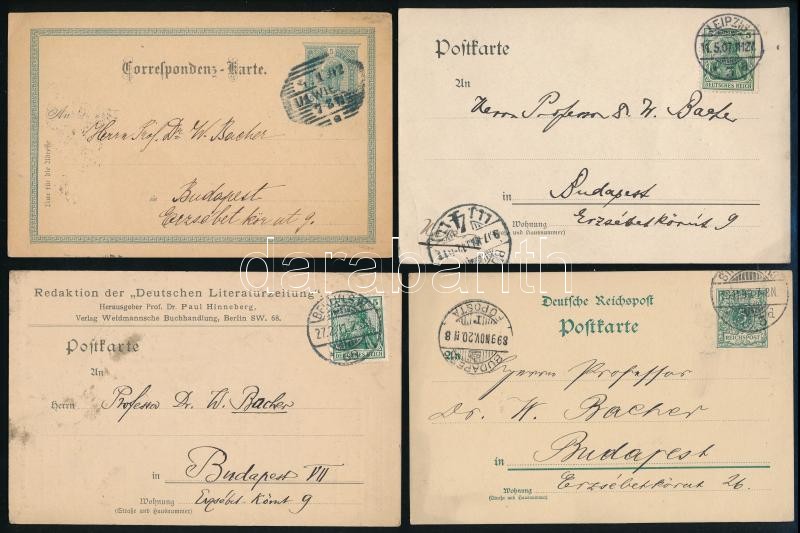 Correspondenz-Karte.
An
Herrn Prof. Dr. W. Bacher
in
Budapest
Erzsébet körut 9.
Nur für die Adresse
LEIPZIG
11.5.07.11-12V.
DEUTSCHES REICH
Postkarte
An
Herrn Professor Dr. W. Bacher
in Budapest
Wohnung Erzsébetkörút 9
(Straße und Hausnummer)
darabanth
Redaktion der „Deutschen Literaturzeitung“
Herausgeber Prof. Dr. Paul Hinneberg.
Verlag Weidmannsche Buchhandlung, Berlin SW. 68.
DEUTSCHES REICH
Postkarte
An
Herrn Professor Dr. W. Bacher
in Budapest VII
Wohnung Erzsébet-Körút 9
(Straße und Hausnummer)
Deutsche Reichspost
Postkarte
REICHSPOST
BUDAPEST
FŐPOSTA
899 NOV. 20
An
Herrn Professor
Dr. W. Bacher
in Budapest
Wohnung Erzsébetkörút 26.
(Straße und Hausnummer)